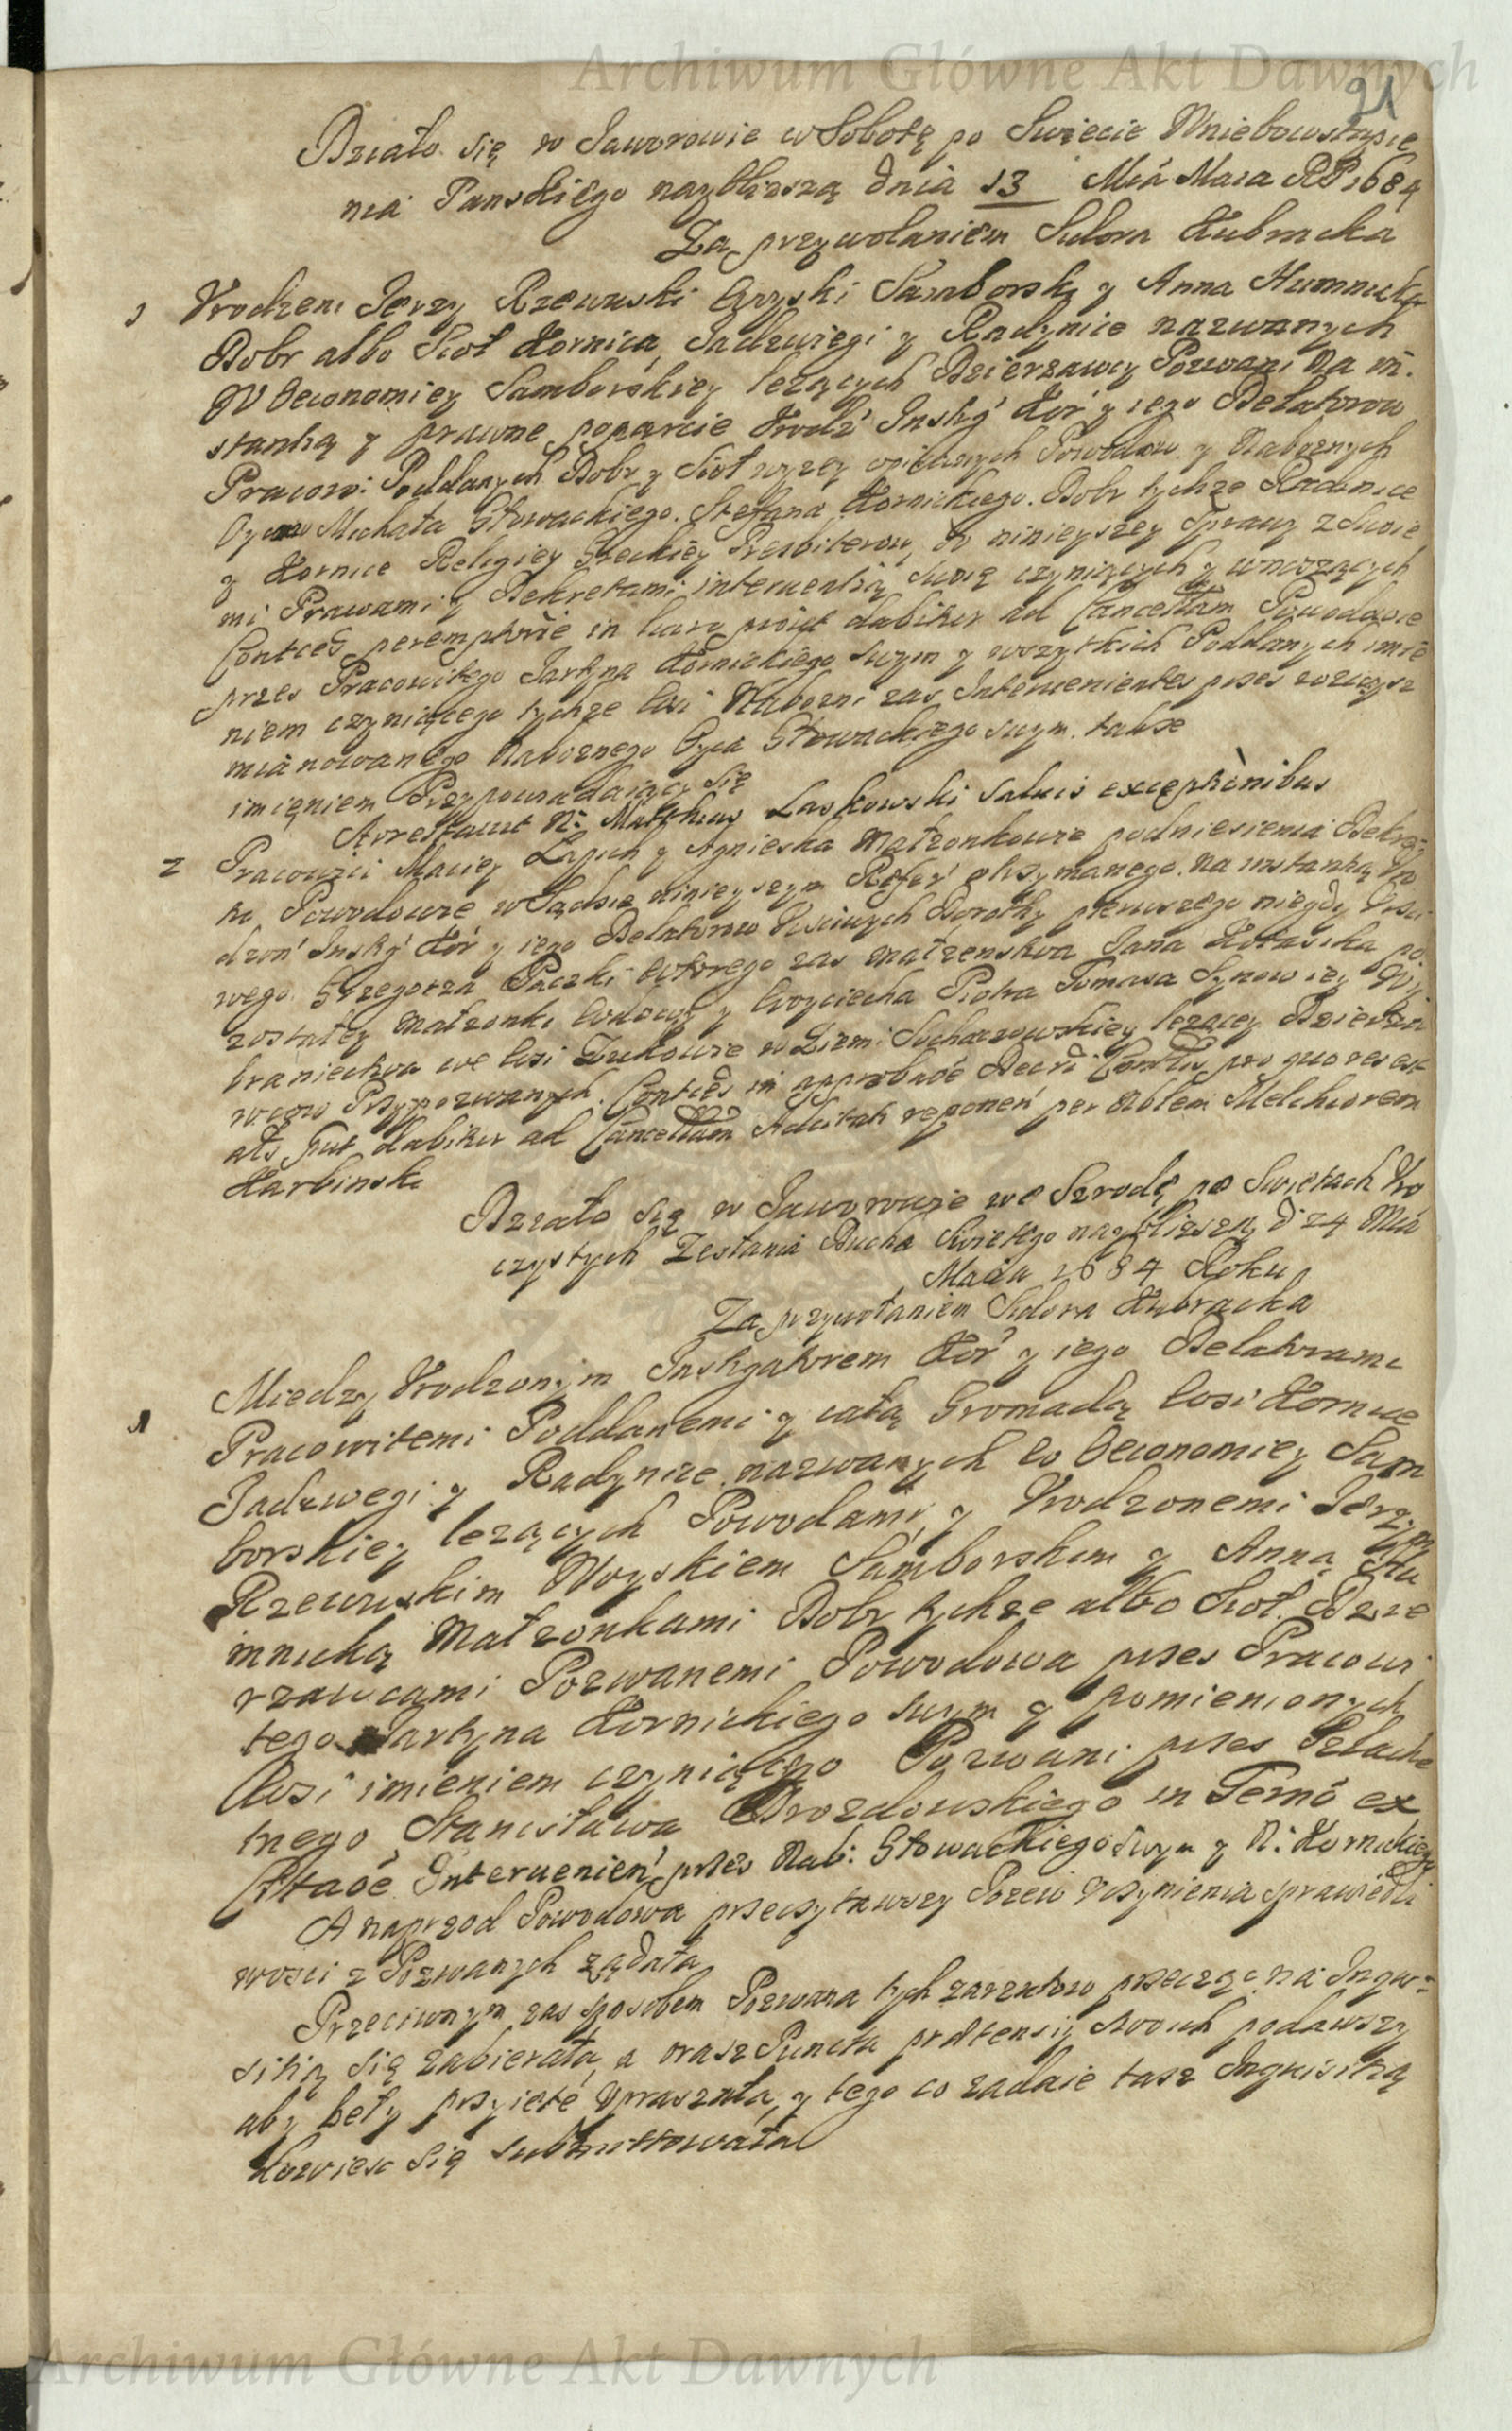 Archiwum Główne Akt Dawnych
21
Działo się w Jaworowie w Sobotę po Swięcie Wniebowstąpie
nia Panskiego nayblizszą dnia 13 Mca Maia RP 1684
Za przywołaniem Sidora Kubracka
1 Vrodzeni Jerzy Rzewuski Woyski Samborski y Anna Humnicka
Dobr albo Sioł Kornica, Jadzwiegi y Radynice nazwanych
W Oeconomiey Samborskiey leżących Dzierzawcy Pozwani Na in
stantią y prawne poparcie Vrodź Instyg Kor y iego Delatorow
Pracow: Poddanych Dobr y Sioł wyzey opisanych Powodow y Naboznych
Oycow Michała Głowackiego. Stefana Kornickiego. Dobr tychze Radinice
y Kornice Religiey Greckiey Presbiterow, do ninieyszey Sprawy z Swoie
mi Prawami y Dekretami interuentią swoię czyniących y wnoszących
Contces peremptorie in causa prout dabitur ad Cancellam Powodowie
przes Pracowitego Jartyna Kornickiego swym y wszytkich Poddanych imie
niem czyniącego tychze Wsi Nabozni zas Interuenientes przes
mianowanego Naboznego Oyca Głowackiego swym. takze
imieniem Przypowiadaiący się
Arrestauit N: Matthias Laskowski saluis exceptionibus
2 Pracowici Maciey y Agnieska Małzonkowie podniesienia Dekre
tu Powodowie w Sądzie ninieyszym Refer otrzymanego. na instantią Vro
dzon Instyg Kor y iego Delatorow Vczciwych Doroty pierwszego niegdy Vczci
wego Grzegorza Paczki wtorego zas małzenstwa Jana po
zostałey Małzonki Wdowy y Woyciecha Piotra Tomasa Synow iey Wy
braniectwa we Wsi Zukowie w Ziemi Sochaczowskiey leżącey Dzierża
wcow Przypozwanych. Contces in approbaoe Decrti Contlis pro quo res est
als prut dabitur ad Cancellam Actitati reponen per Noblem Melchiorem
Karbinski
Działo się w Jaworowie we Szrodę po Swiętach Vro
czystych Zesłania Ducha Swiętego nayblizszą d 24 Mca
Maia 1684 Roku
Za przywołaniem Sidora Kubracka
1 Miedzy Vrodzonym Instygatorem Kor y iego Delatorami
Pracowitemi Poddanemi y całą Gromadą Wsi Kornice
Jadzwiegi y Radynice nazwanych w Oeconomiey Sam
borskiey leżących Powodami, y Vrodzonemi Jerzym
Rzewuskim Woyskiem Samborskim y Anną Hu
mnicką Małzonkami Dobr tychze albo Sioł. Dzie
rzawcami Pozwanemi Powodowa przes Pracowi
tego Jartyna Kornickiego swym y pomienionych
Wsi imieniem czyniącego Pozwani przes Szlache
tnego Stanisława Drozdowskiego in Termo ex
Citaoe Interuenien przes Nab: Głowackiego swym y N: Kornickiego
A naprzod Powodowa przeczytawszy Pozew Vczynienia sprawiedli
wosci z Pozwanych ządała
Przeciwnym zas sposobem Pozwana tych zarzutow przecząc na Inqui
sitią się zabierała, a oraz Puncta prætensiy swoich podawszy
aby beły przyięte Vpraszała, y tego co zadaie tasz Inquisitią
dowiesc się submittowała
Archiwum Główne Akt Dawnych